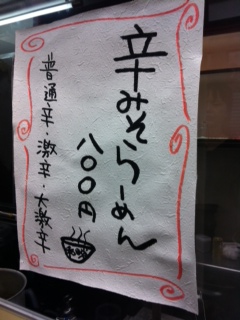 辛みそらーめん
八〇〇円
普通辛・激辛・大激辛